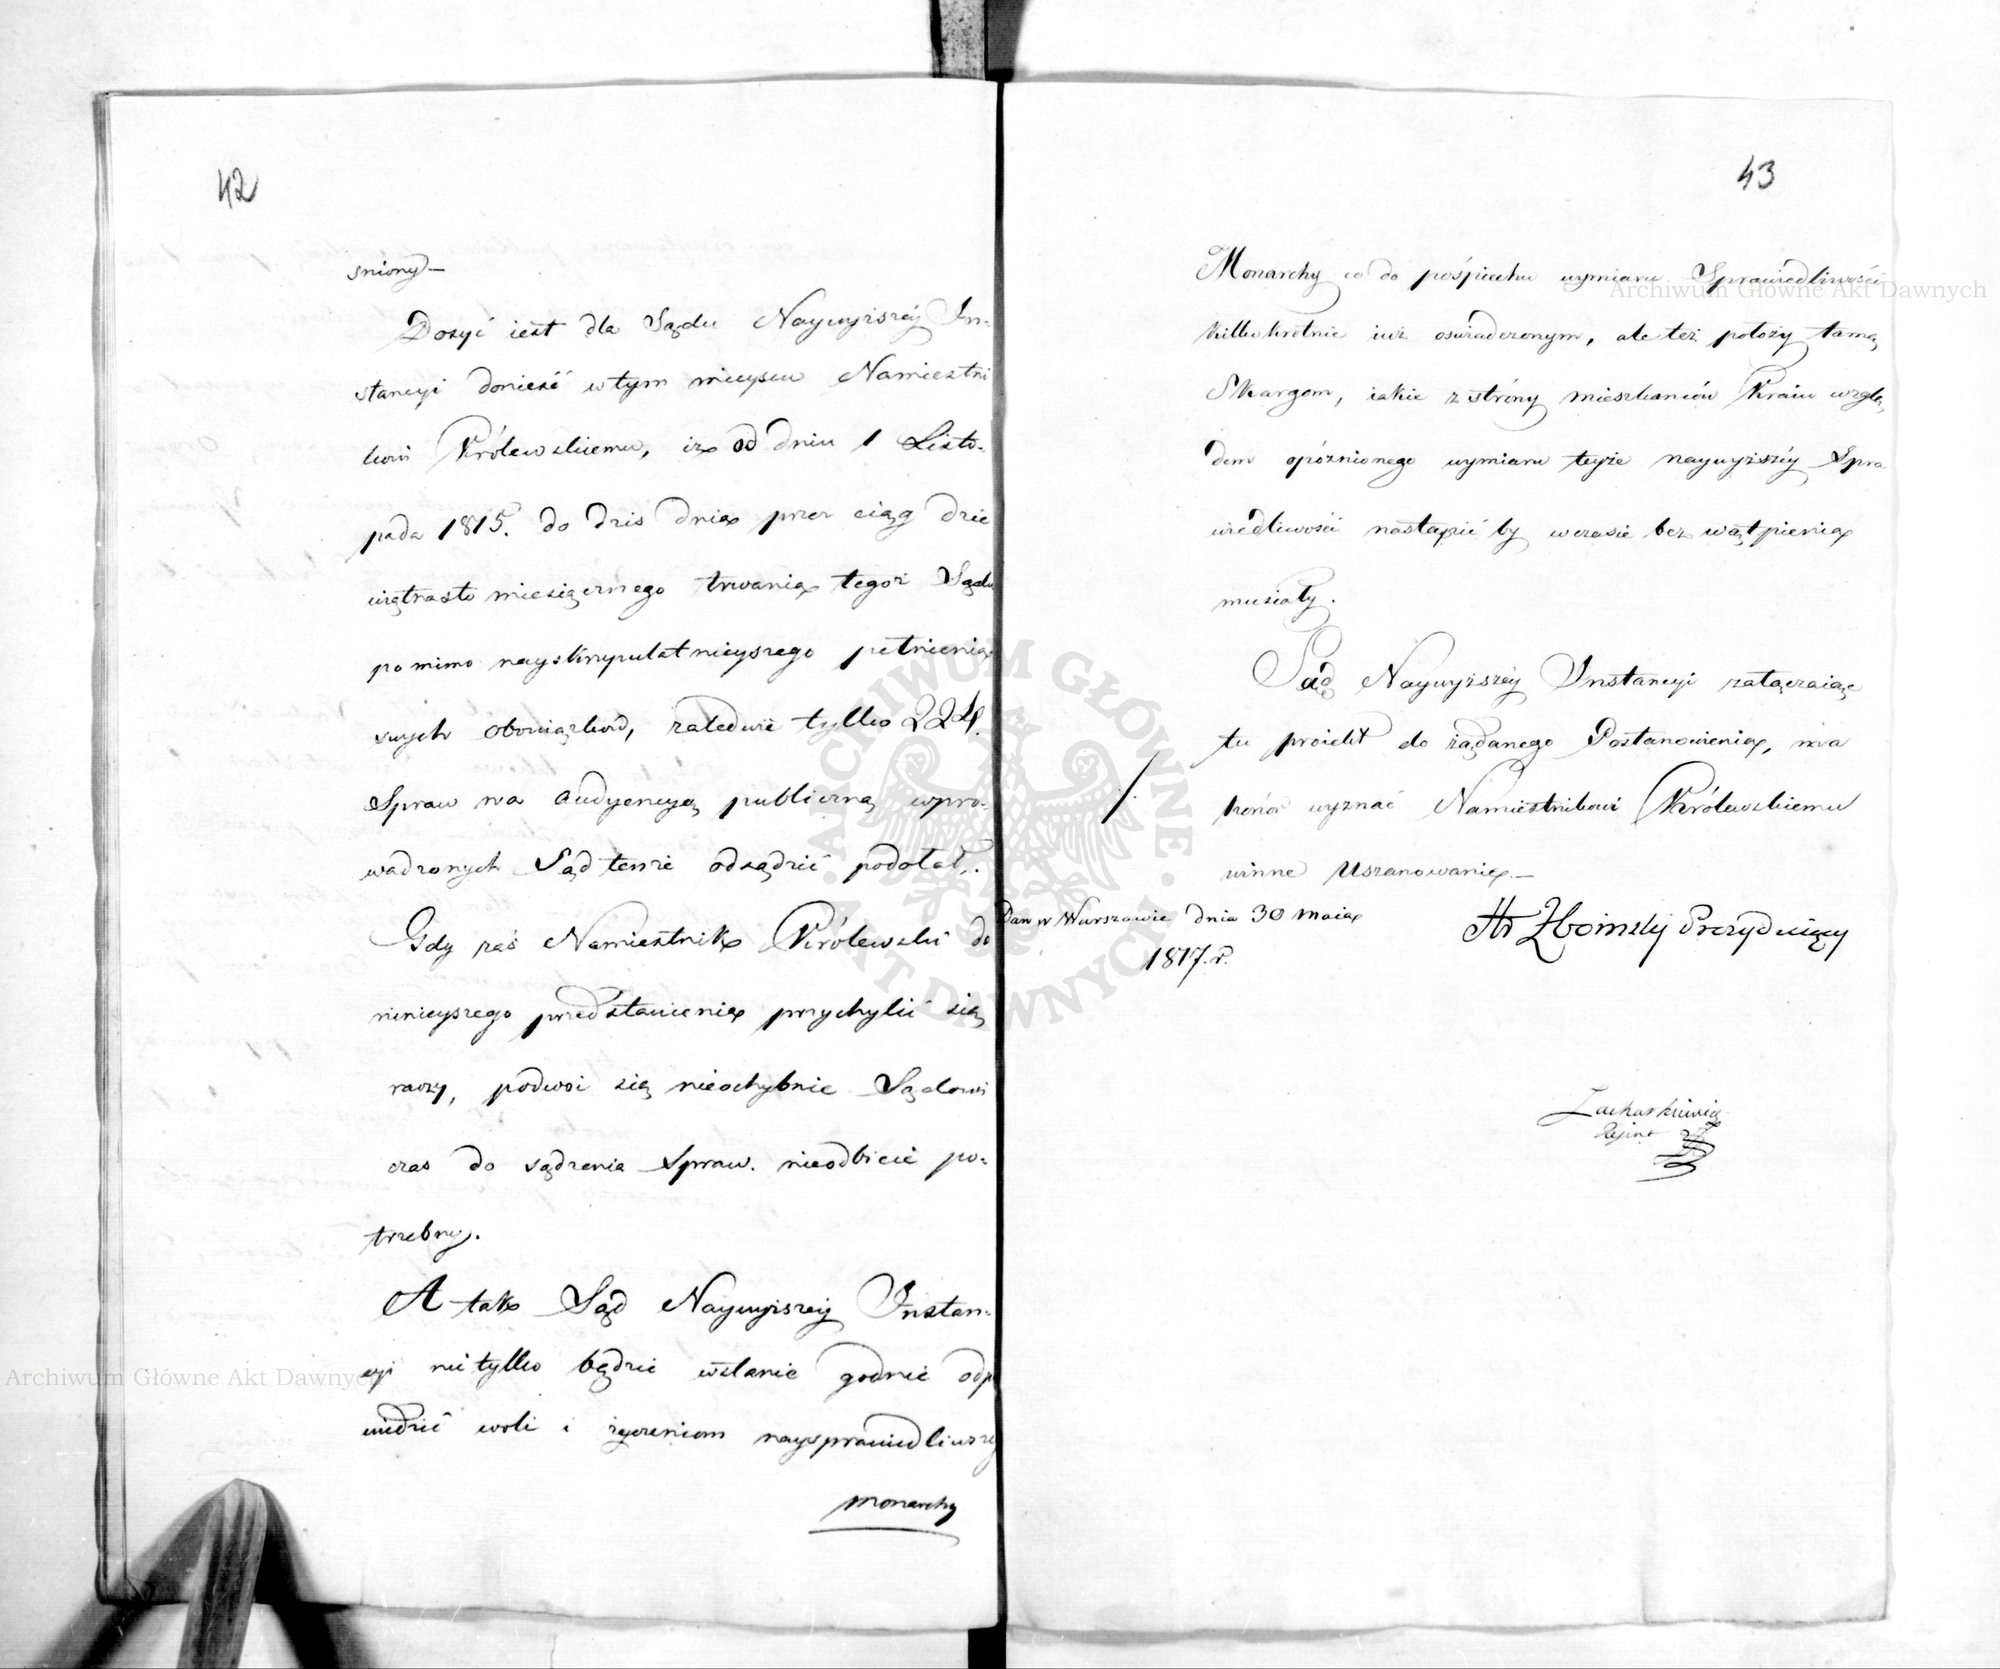 42
sniony –
Dosyć iest dla Sądu Naywyższey In-
stancyi donieść w tym mieyscu Namiestni
kowi Królewskiemu, iż od dniu 1 Listo-
pada 1815. do dzis dnia przez ciąg dzie
więtnasto miesięcznego trwania tegoż Sądu
pomimo nayskrupulatnieyszego pełnienia
swych obowiązków, zaledwie tylko 224.
Spraw na audyencyą publiczną wpro-
wadzonych Sąd tenże odsądzić podołał.
Gdy zaś Namiestnik Królewski do
ninieyszego przedstawienia przychylić się
raczy, podwoi się nieochybnie Sądowi
czas do sądzenia Spraw. nieodbicie po-
trzebny.
A tak Sąd Naywyższey Instan-
cyi nie tylko będzie w stanie godnie odpo
wiedzieć woli i życzeniom naysprawiedliwszey
Monarchy
43
Monarchy co do pośpiechu wymiaru Sprawiedliwości
kilkokrotnie iuż oświadczonym, ale też położy tamę
Skargom, iakie z stróny mieszkańców Kraiu wzglę-
dem opóźnionego wymiaru teyże naywyższéy Spra
wiedliwości nastąpić by w czasie bez wątpienia
musiały.
Sąd Naywyższéy Instancyi załączaiąc
tu proiekt do żądanego Postanowienia, ma
honor wyznać Namiestnikowi Królewskiemu
winne Uszanowanie. –
Dan w Warszawie dnia 30 Maia
1817. r.
Hr Zboinski Prezyduiący
Zacharkiewicz
Rejent
Archiwum Główne Akt Dawnych
Archiwum Główne Akt Dawnych
· ARCHIWUM GŁÓWNE · AKT DAWNYCH